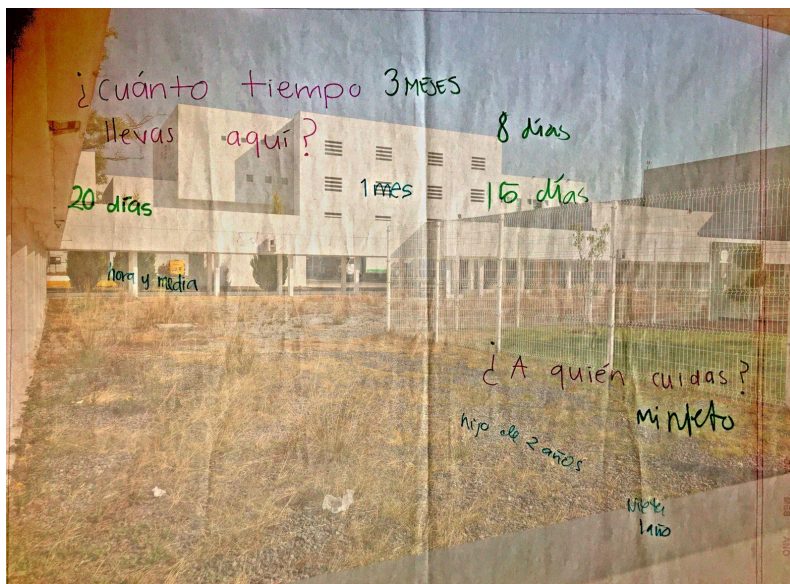 ¿Cuánto tiempo 3 MESES
llevas aquí? 8 días
20 días 1 mes 15 días
hora y media
¿A quién cuidas?
mi nieto
hijo de 2 años
1 año